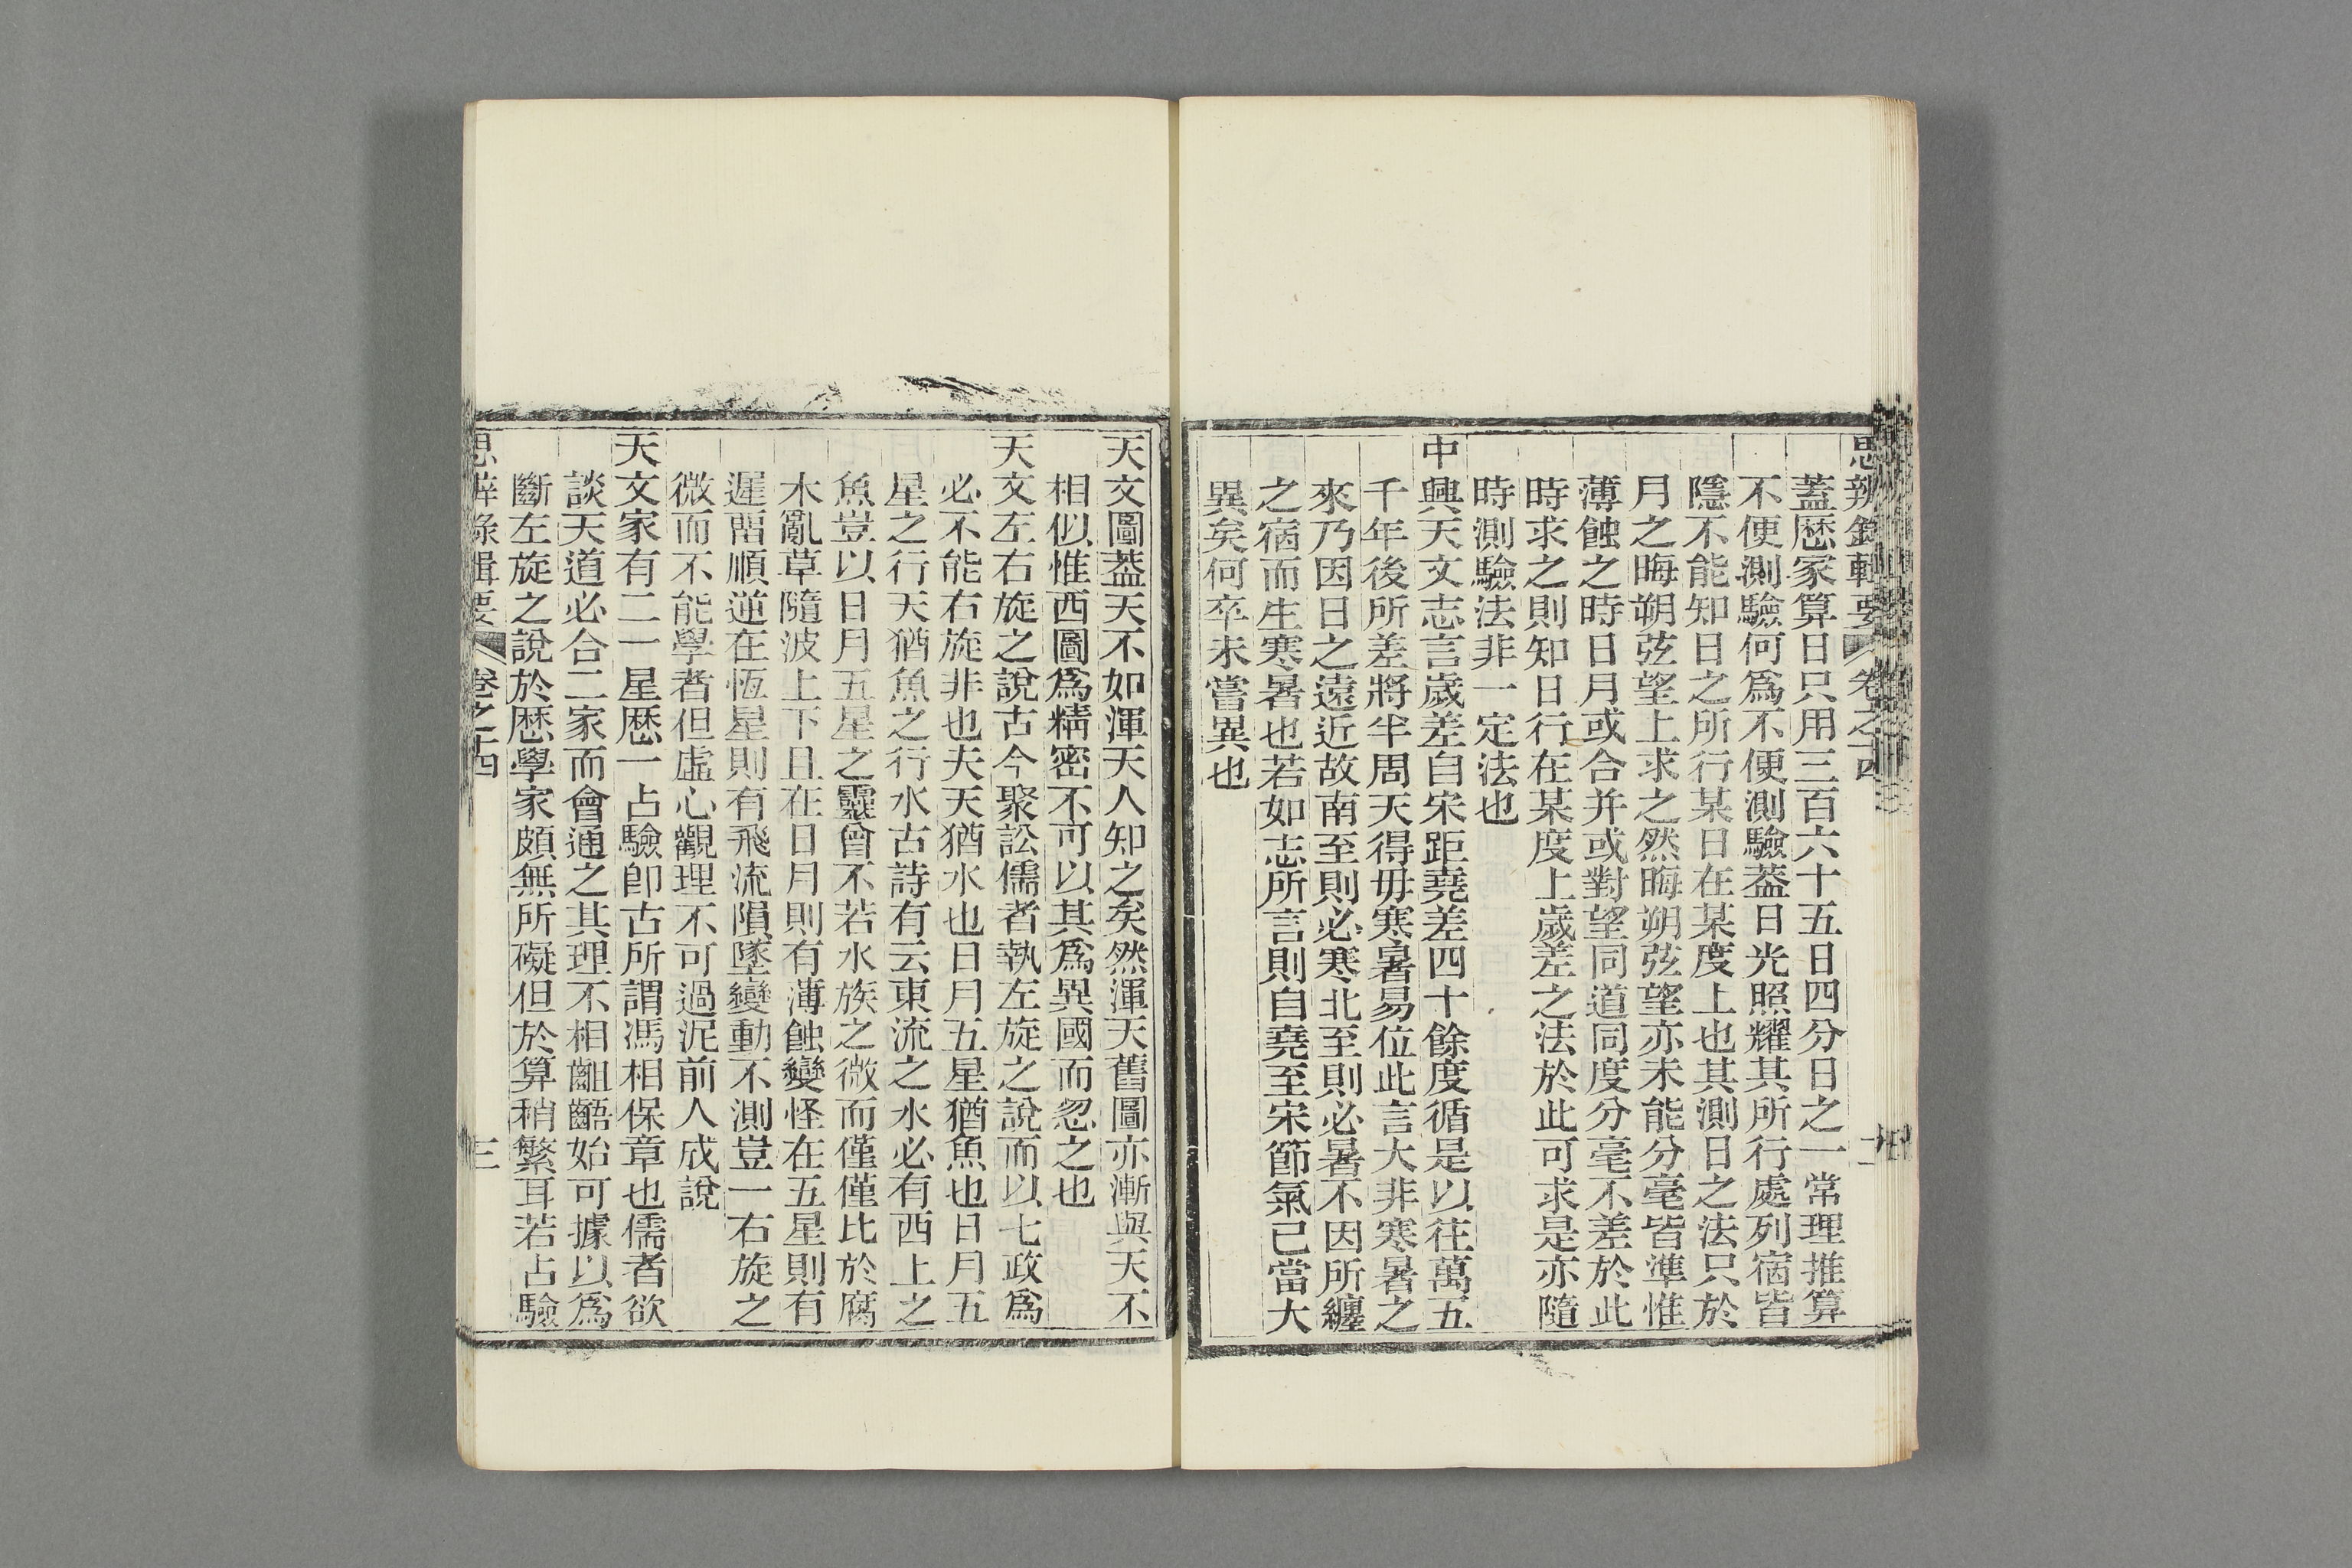 思辨錄輯要 卷之十四
蓋厯家算日只用三百六十五日四分日之一常理推算
不便測驗何爲不便測驗葢日光照耀其所行處列宿皆
隱不能知日之所行某日在某度上也其測日之法只於
月之晦朔弦望上求之然晦朔弦望亦未能分毫皆準惟
薄蝕之時日月或合并或對望同道同度分毫不差於此
時求之則知日行在某度上歲差之法於此可求是亦隨
時測驗法非一定法也
中興天文志言歲差自宋距堯差四十餘度循是以往萬五
千年後所差將半周天得毋寒暑易位此言大非寒暑之
來乃因日之遠近故南至則必寒北至則必暑不因所纏
之宿而生寒暑也若如志所言則自堯至宋節氣已當大
異矣何卒未嘗異也
天文圖葢天不如渾天人知之矣然渾天舊圖亦漸與天不
相似惟西圖爲精密不可以其爲異國而忽之也
天文左右旋之說古今聚訟儒者執左旋之說而以七政爲
必不能右旋非也夫天猶水也日月五星猶魚也日月五
星之行天猶魚之行水古詩有云東流之水必有西上之
魚豈以日月五星之靈曾不若水族之微而僅僅比於腐
木亂草隨波上下且在日月則有薄蝕變怪在五星則有
遲畱順逆在恆星則有飛流隕墜變動不測豈一右旋之
微而不能學者但虛心觀理不可過泥前人成說
天文家有二一星厯一占驗卽古所謂馮相保章也儒者欲
談天道必合二家而會通之其理不相齟齬始可據以爲
斷左旋之說於厯學家頗無所礙但於算稍繁耳若占驗
思辨錄輯要 卷之十四 三